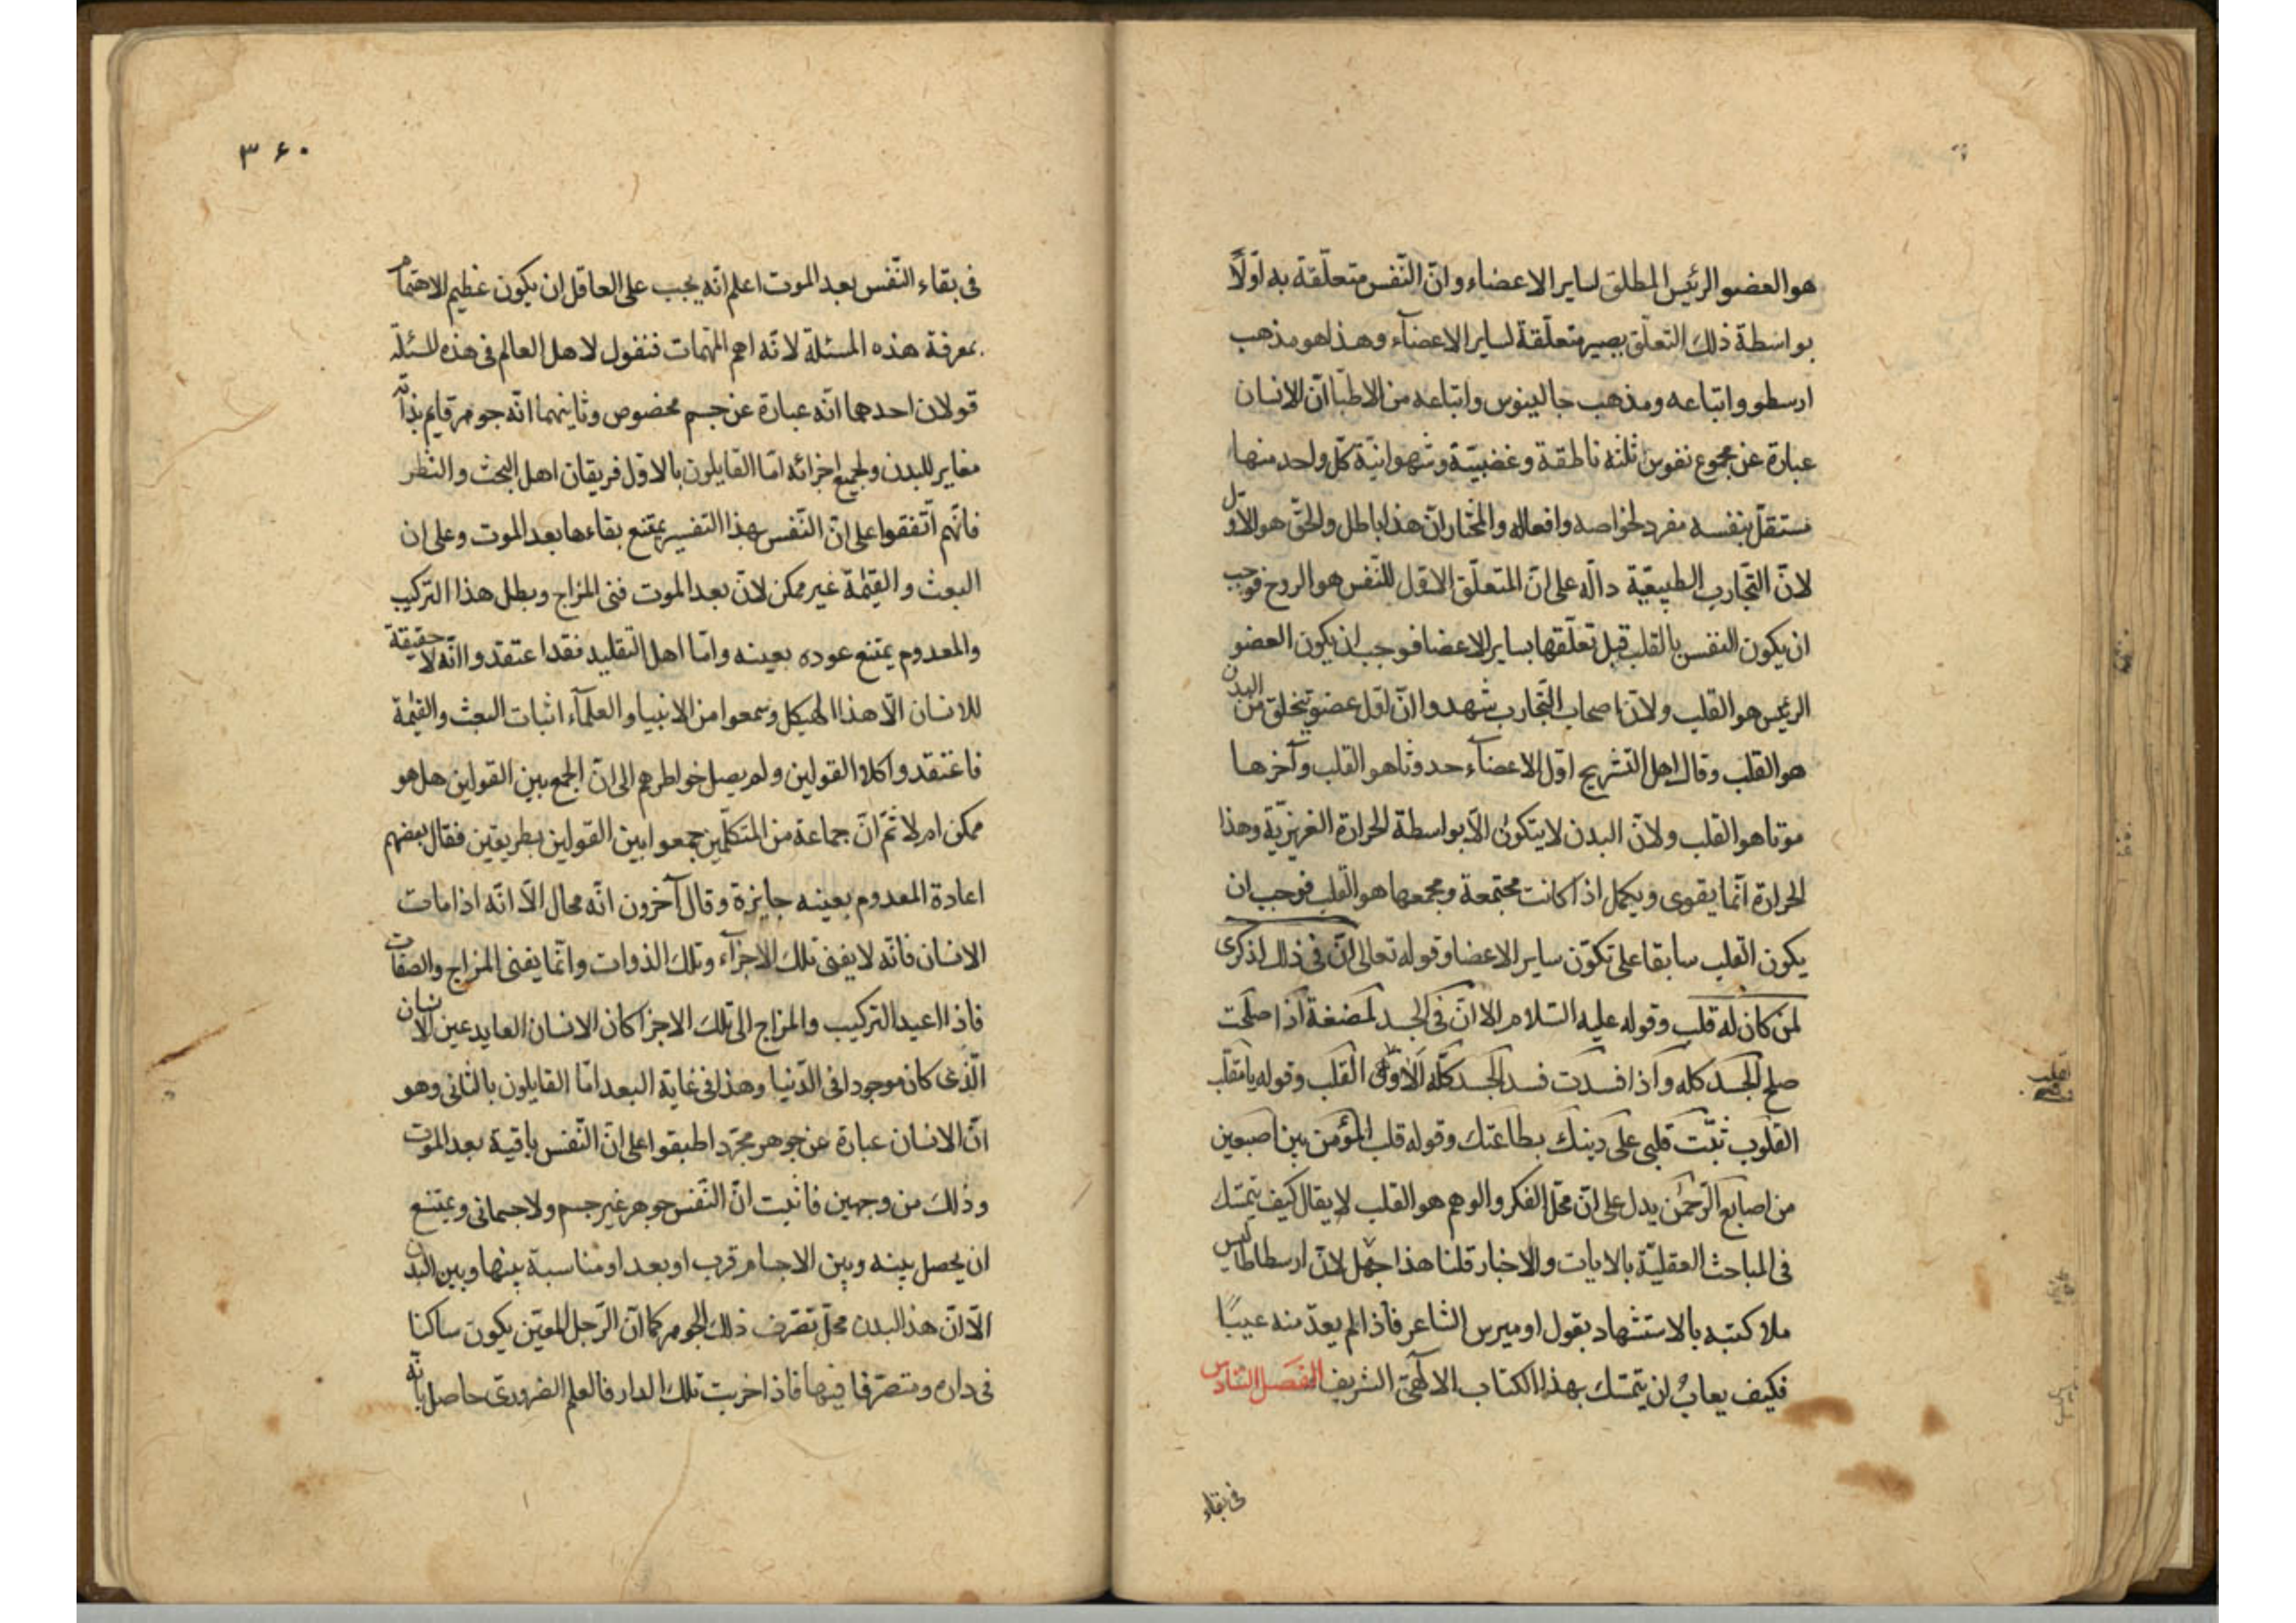 هو العضو الرئيس المطلق لساير الاعضاء وانّ النّفس متعلّقة به اوّلًا
بواسطة ذلك التعلّق يصير متعلّقة لساير الاعضآء وهذا هو مذهب
ارسطو واتباعه ومذهب جالينوس واتباعه من الاطبّا انّ الانسان
عبارة عن مجموع نفوس ثلثه ناطقة وغضبيّة وشهوانيّة كلّ واحد منها
مستقلّ بنفسه مفرد لخواصه وافعاله والمختار انّ هذا باطل والحقّ هو الاوّل
لانّ التّجارب الطبيعيّة دالّه على انّ المتعلّق الاوّل للنّفس هو الروح فوجب
ان يكون النفس بالقلب قبل تعلّقها بساير الاعضا فوجب ان يكون العضو
الرئيس هو القلب ولانّ اصحاب التّجارب شهدوا انّ اوّل عضو يتخلق من البدن
هو القلب وقال اهل التشريح اوّل الاعضآء حدوثا هو القلب وآخرها
موتا هو القلب ولانّ البدن لا يتكون الّا بواسطة الحرارة الغريزيّة وهذا
الحرارة انّما يقوى ويكمل اذا كانت مجتمعة ومجمعها هو القلب فوجب ان
يكون القلب سابقا على تكوّن ساير الاعضا وقوله تعالى انّ فى ذلك لذكرى
لمن كان له قلب وقوله عليه السّلام الا انّ فى الجسد لمضغة اذا صلحت
صلح الجسد كله واذا فسدت فسد الجسد كلّه الا وهى القلب وقوله يا مقلّب
القلوب ثبّت قلبى على دينك بطاعتك وقوله قلب المؤمن بين اصبعين
من اصابع الرّحمن يدل على انّ محلّ الفكر والوهم هو القلب لا يقال كيف يتمسّك
فى المباحث العقليّة بالايات والاخبار قلنا هذا جهل لانّ ارسطاطاليس
ملا كتبه بالاستشهاد بقول اوميرس الشاعر فاذا لم يعدّ منه عيبًا
فكيف يعاب ان يتمسّك بهذا الكتاب الالٓهىّ الشريف الفصل السّادس
فى بقاء
٣۶٠
فى بقاء النّفس بعد الموت اعلم انّه يجب على العاقل ان يكون عظيم الاهتمام
بمعرفة هذه المسئلة لانّه اهم المهمّات فنقول لاهل العالم فى هذه المسئلة
قولان احدهما انّه عبارة عن جسم مخصوص وثانيهما انّه جوهر قايم بذاته
مغاير للبدن ولجميع اجزائه امّا القايلون بالاوّل فريقان اهل البحث والنّظر
فانّهم اتّفقوا على انّ النّفس بهذا التفسير يمتنع بقاءها بعد الموت وعلى ان
البعث والقيٰمة غير ممكن لانّ بعد الموت فنى المزاج وبطل هذا التركيب
والمعدوم يمتنع عوده بعينه وامّا اهل التقليد فقد اعتقدوا انّه لا حقيقة
للانسان الّا هذا الهيكل وسمعوا من الانبيا والعلمآء اثبات البعث والقيٰمة
فاعتقدوا كلا القولين ولم يصل خواطرهم الى انّ الجمع بين القولين هل هو
ممكن ام لا ثمّ انّ جماعة من المتكلّمين جمعوا بين القولين بطريقين فقال بعضهم
اعادة المعدوم بعينه جايزة وقال آخرون انّه محال الّا انّه اذا مات
الانسان فانّه لا يفنى تلك الاجزآء وتلك الذوات وانّما يفنى المزاج والصّفات
فاذا اعيد التركيب والمزاج الى تلك الاجزا كان الانسان العايد عين الانسان
الّذى كان موجودا فى الدّنيا وهذا فى غاية البعد امّا القايلون بالثانى وهو
انّ الانسان عبارة عن جوهر مجرّد اطبقوا على انّ النّفس باقية بعد الموت
وذلك من وجهين فاثبت انّ النّفس جوهر غير جسم ولا جسمانى ويمتنع
ان يحصل بينه وبين الاجسام قرب او بعد او مناسبة بينها وبين البدن
الّا انّ هذا البدن محلّ تصّرف ذلك الجوهر كما انّ الرّجل المعيّن يكون ساكنا
فى داره ومتصرّفا فيها فاذا خربت تلك الدار فالعلم الضرورىّ حاصل بانّه